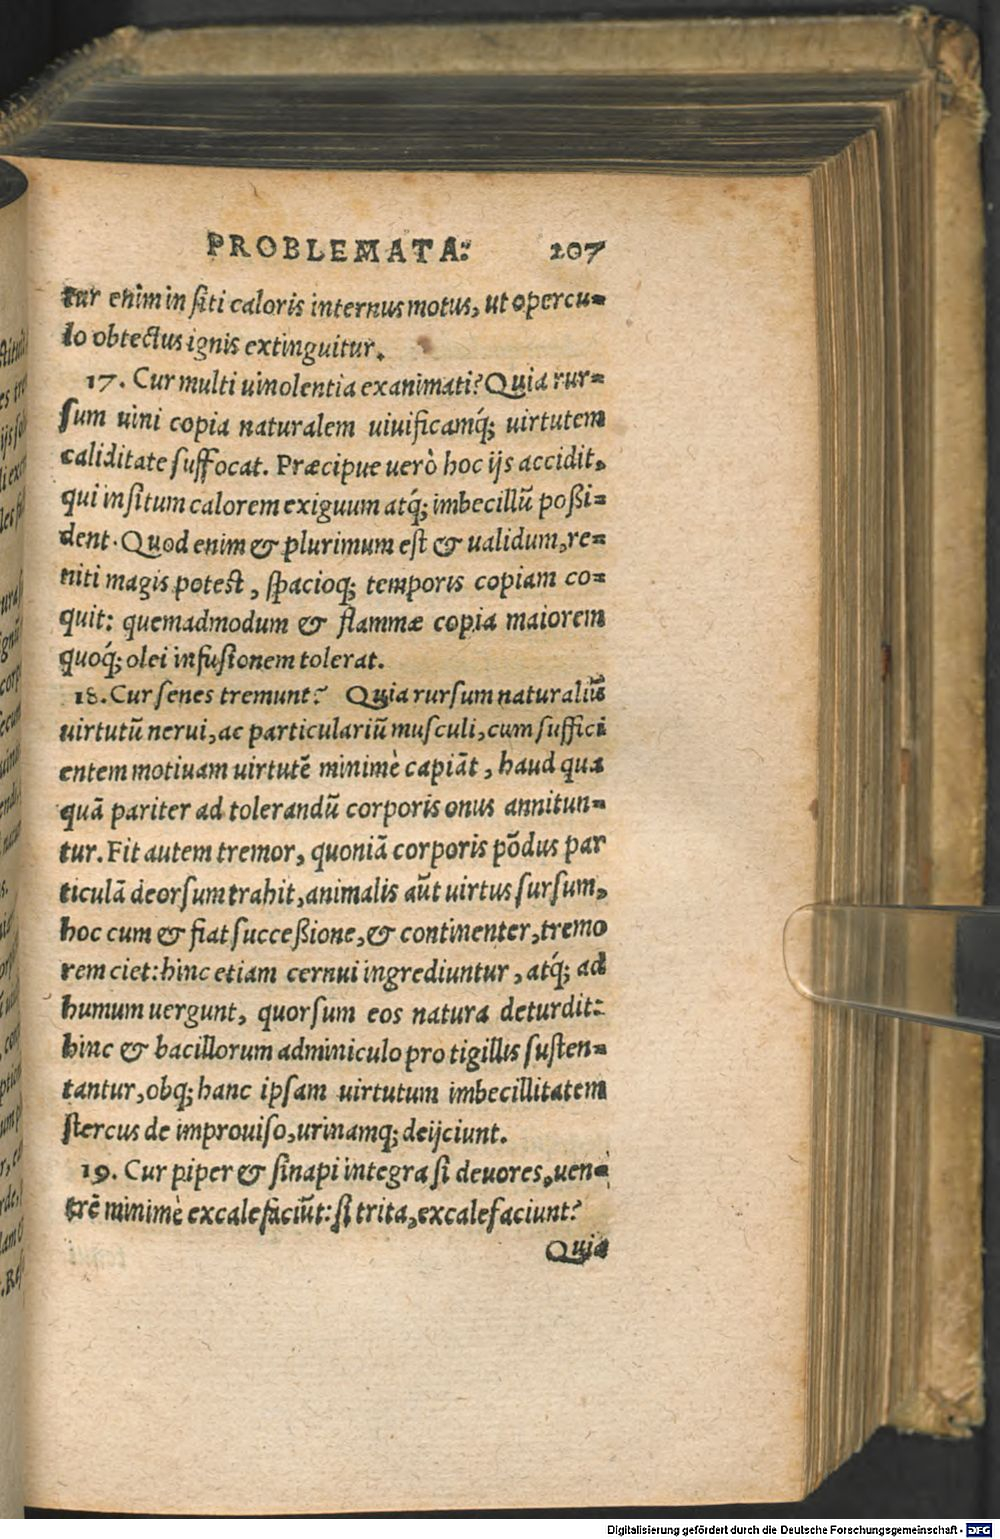 PROBLEMATA. 207
tur enim in ſiti caloris internus motus, ut opercu-
lo obtectus ignis extinguitur.
17. Cur multi uinolentia exanimati? Quia rur-
ſum uini copia naturalem uiuificamq́; uirtutem
caliditate ſuffocat. Præcipue uerò hoc ijs accidit,
qui inſitum calorem exiguum atq́; imbecillũ poßi-
dent. Quod enim & plurimum eſt & ualidum, re-
niti magis poteſt, ſpacioq; temporis copiam co-
quit: quemadmodum & flammæ copia maiorem
quoq́; olei infuſionem tolerat.
18. Cur ſenes tremunt? Quia rurſum naturaliũ
uirtutũ nerui, ac particulariũ muſculi, cum ſuffici
entem motiuam uirtutẽ minimè capiãt, haud qua
quã pariter ad tolerandũ corporis onus annitun-
tur. Fit autem tremor, quoniã corporis põdus par
ticulã deorſum trahit, animalis aũt uirtus ſurſum,
hoc cum & fiat ſucceßione, & continenter, tremo
rem ciet: hinc etiam cernui ingrediuntur, atq́; ad
humum uergunt, quorſum eos natura deturdit:
hinc & bacillorum adminiculo pro tigillis ſuſten-
tantur, obq; hanc ipſam uirtutum imbecillitatem
ſtercus de improuiſo, urinamq; deijciunt.
19. Cur piper & ſinapi integra ſi deuores, uen-
trẽ minimè excalefaciũt: ſi trita, excalefaciunt?
Quia
Digitalisierung gefördert durch die Deutsche Forschungsgemeinschaft - DFG